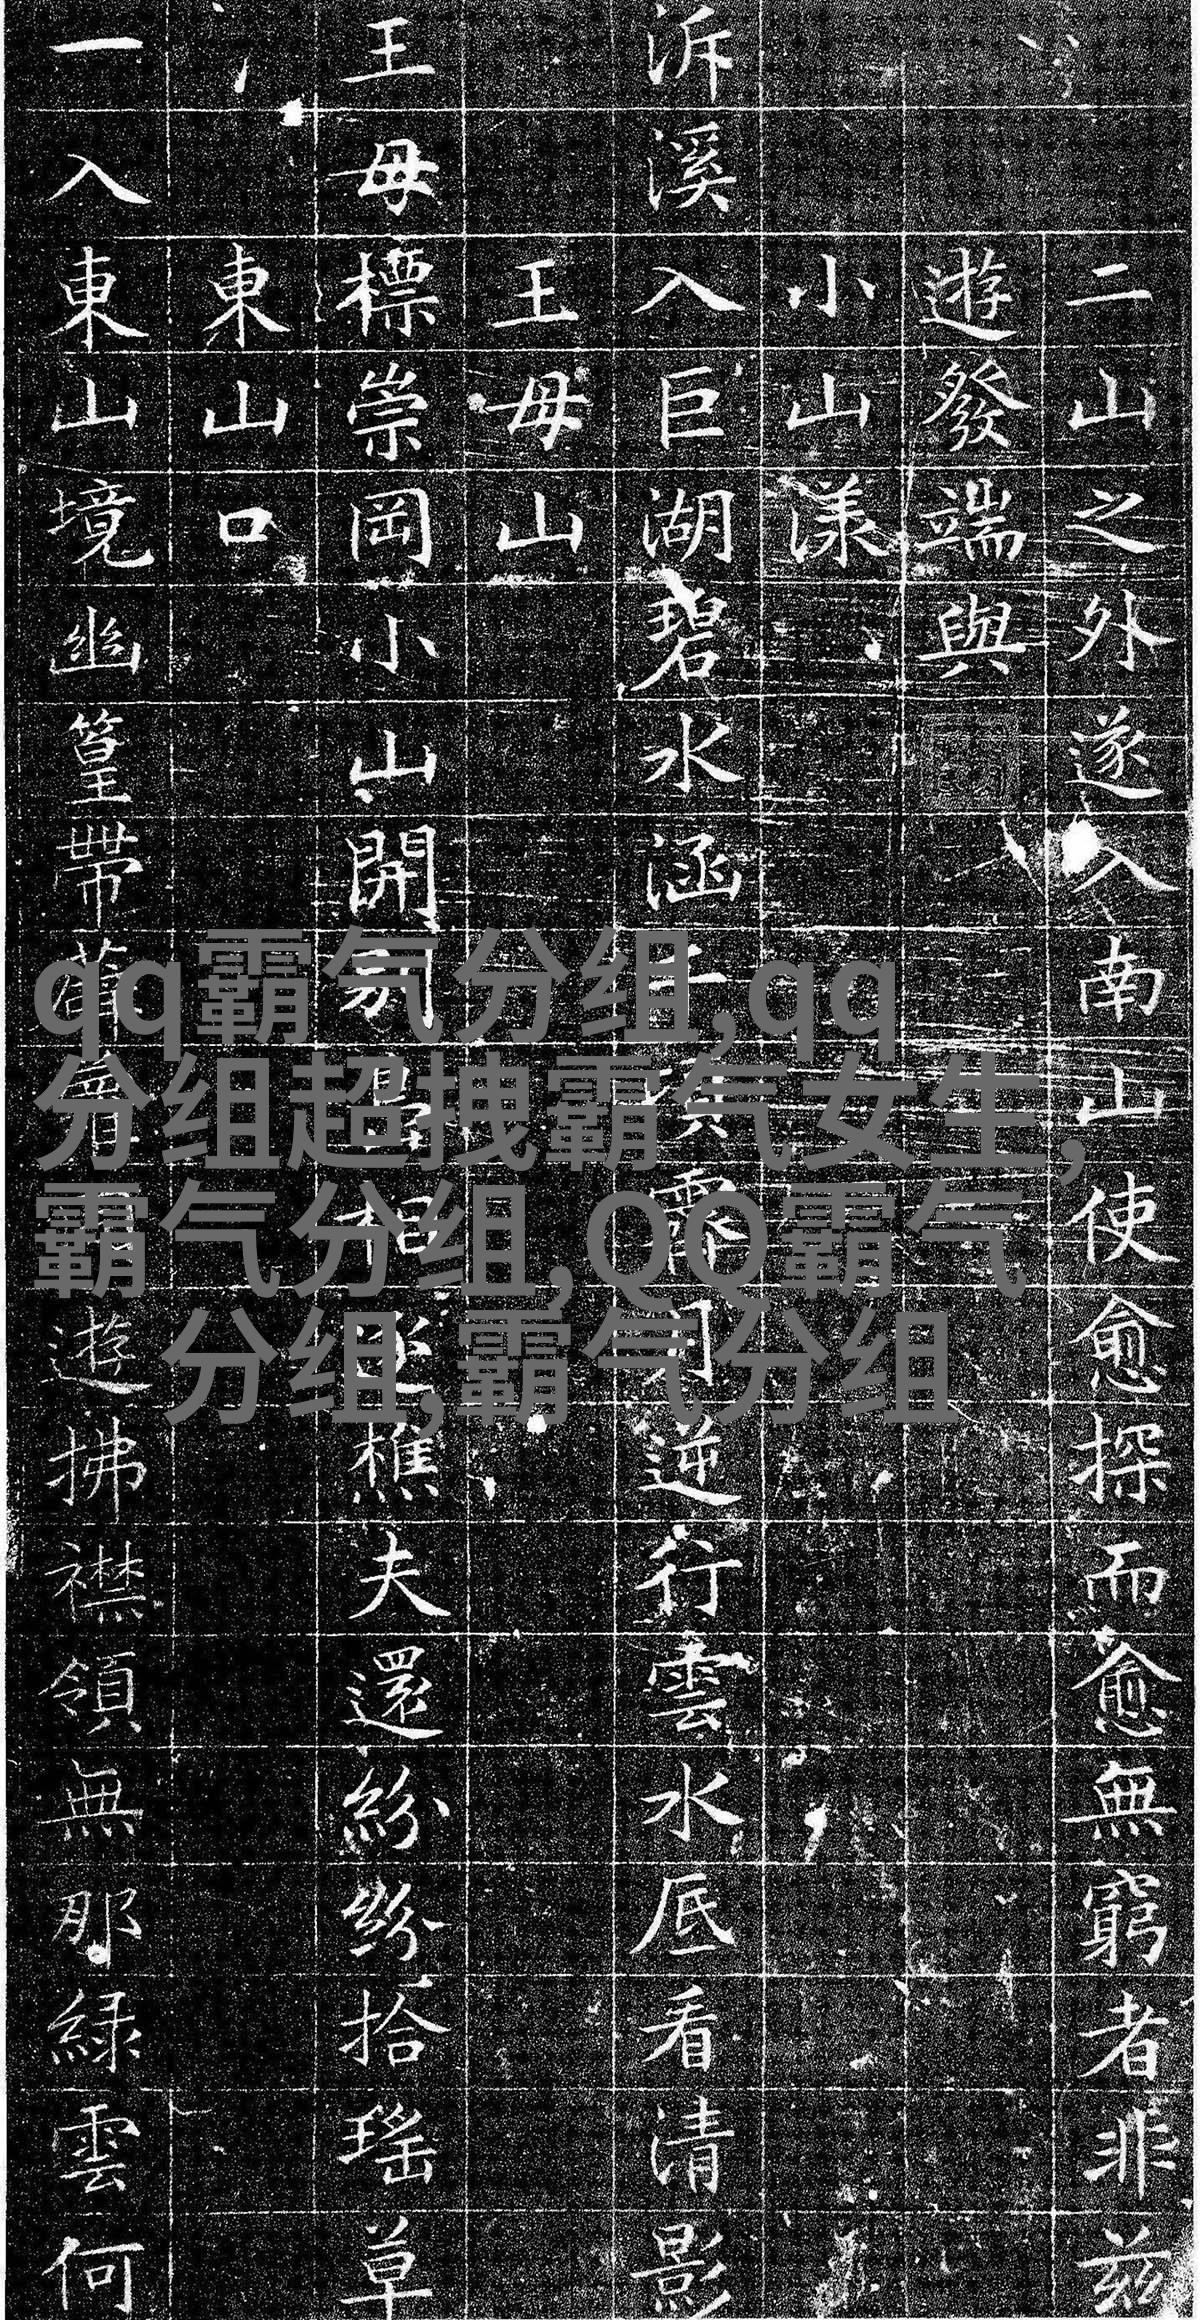 二山之外遂入南山使愈探而愈無窮者非兹
遊發端與
小山漾
泝溪入巨湖碧水涵
逆行雲水底看清影
王母山
王母標崇岡小山開
樵夫還紛紛拾瑤草
東山口
一入東山境幽篁帶
遊拂襟領無那緑雲何
qq霸气分组,qq
分组超拽霸气女生,
霸气分组,QQ霸气
分组,霸气分组